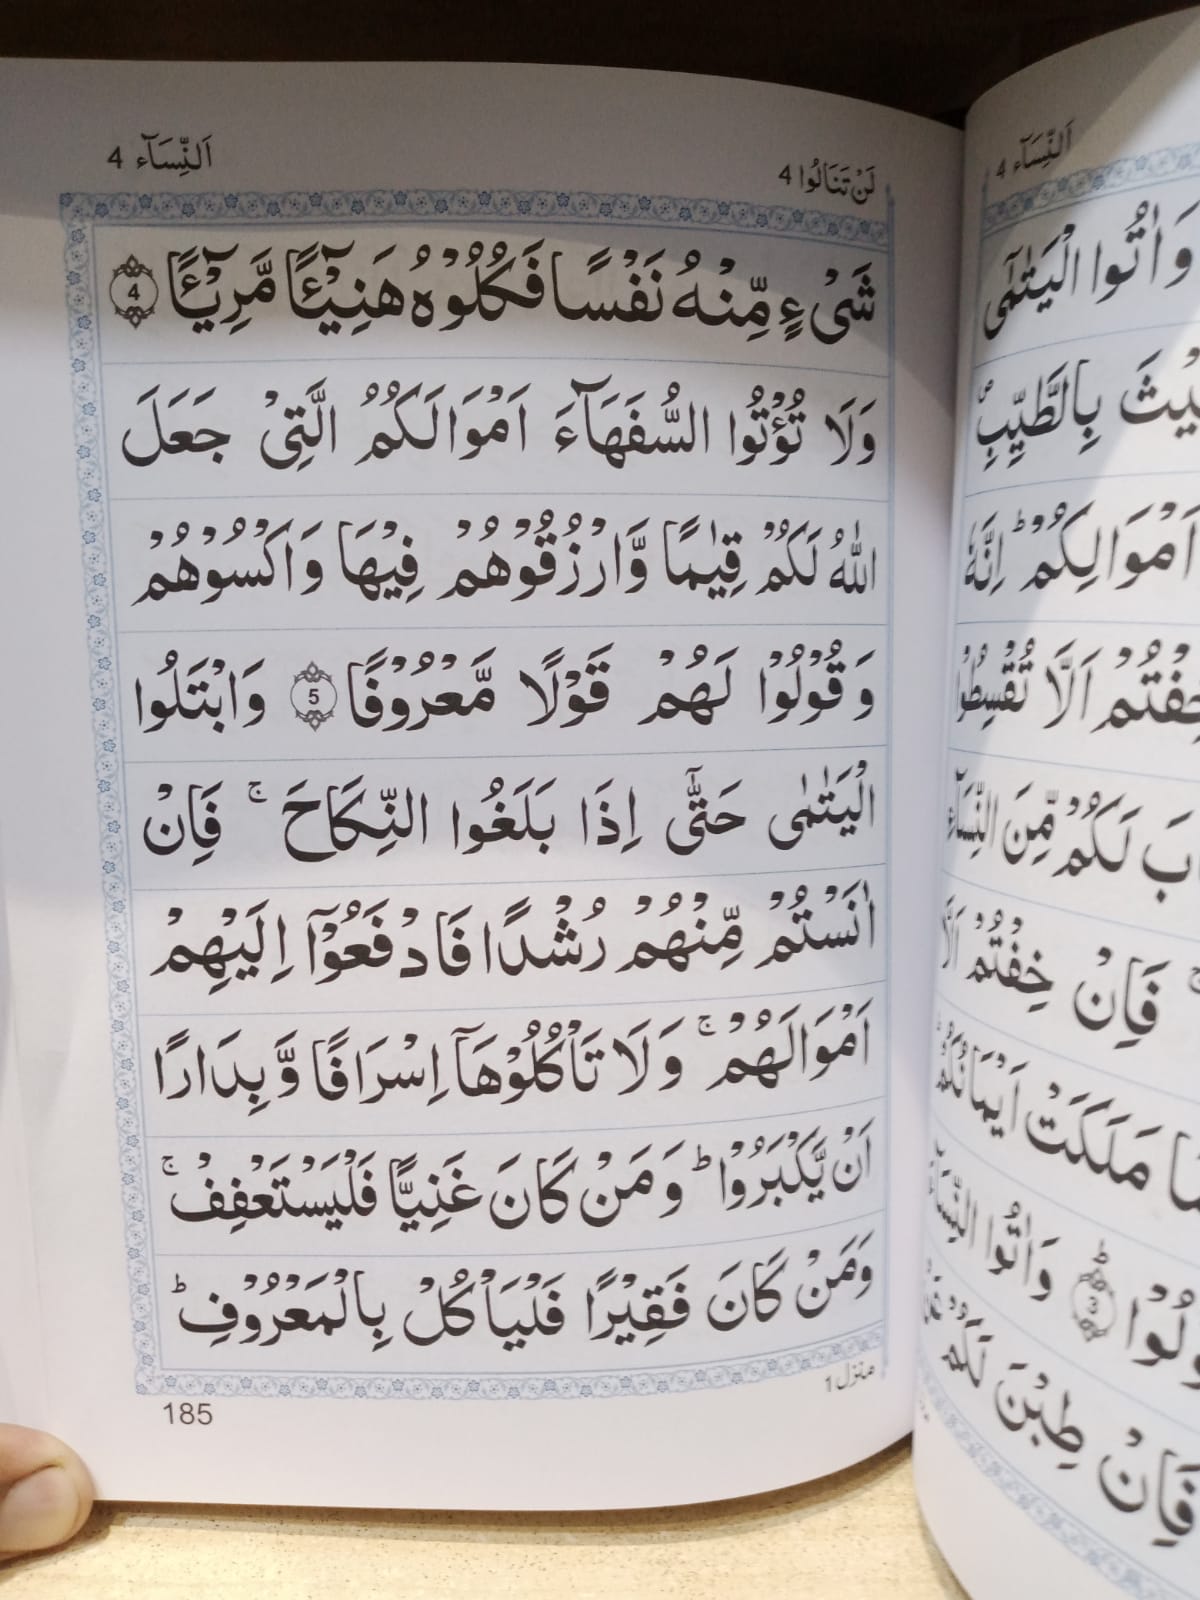 لَنْ تَنَالُوا 4
اَلنِّسَآء 4
شَیْءٍ مِّنْهُ نَفْسًا فَكُلُوْهُ هَنِیْٓـًٔا مَّرِیْٓـًٔا 4
وَلَا تُؤْتُوا السُّفَهَآءَ اَمْوَالَكُمُ الَّتِیْ جَعَلَ
اللّٰهُ لَكُمْ قِیٰمًا وَّارْزُقُوْهُمْ فِیْهَا وَاكْسُوْهُمْ
وَقُوْلُوْا لَهُمْ قَوْلًا مَّعْرُوْفًا 5 وَابْتَلُوا
الْیَتٰمٰی حَتّٰۤی اِذَا بَلَغُوا النِّكَاحَ ۚ فَاِنْ
اٰنَسْتُمْ مِّنْهُمْ رُشْدًا فَادْفَعُوْۤا اِلَیْهِمْ
اَمْوَالَهُمْ ۚ وَلَا تَاْكُلُوْهَاۤ اِسْرَافًا وَّبِدَارًا
اَنْ یَّكْبَرُوْا ؕ وَمَنْ كَانَ غَنِیًّا فَلْیَسْتَعْفِفْ ۚ
وَمَنْ كَانَ فَقِیْرًا فَلْیَاْكُلْ بِالْمَعْرُوْفِ ؕ
منزل 1
185
اَلنِّسَآء 4
وَاٰتُوا الْیَتٰمٰٓی
بِالطَّیِّبِ ۪
اَمْوَالِكُمْ ؕ اِنَّهٗ
خِفْتُمْ اَلَّا تُقْسِطُوْا
لَكُمْ مِّنَ النِّسَآءِ
فَاِنْ خِفْتُمْ اَلَّا
مَلَكَتْ اَیْمَانُكُمْ ؕ
3 وَاٰتُوا النِّسَآءَ
فَاِنْ طِبْنَ لَكُمْ